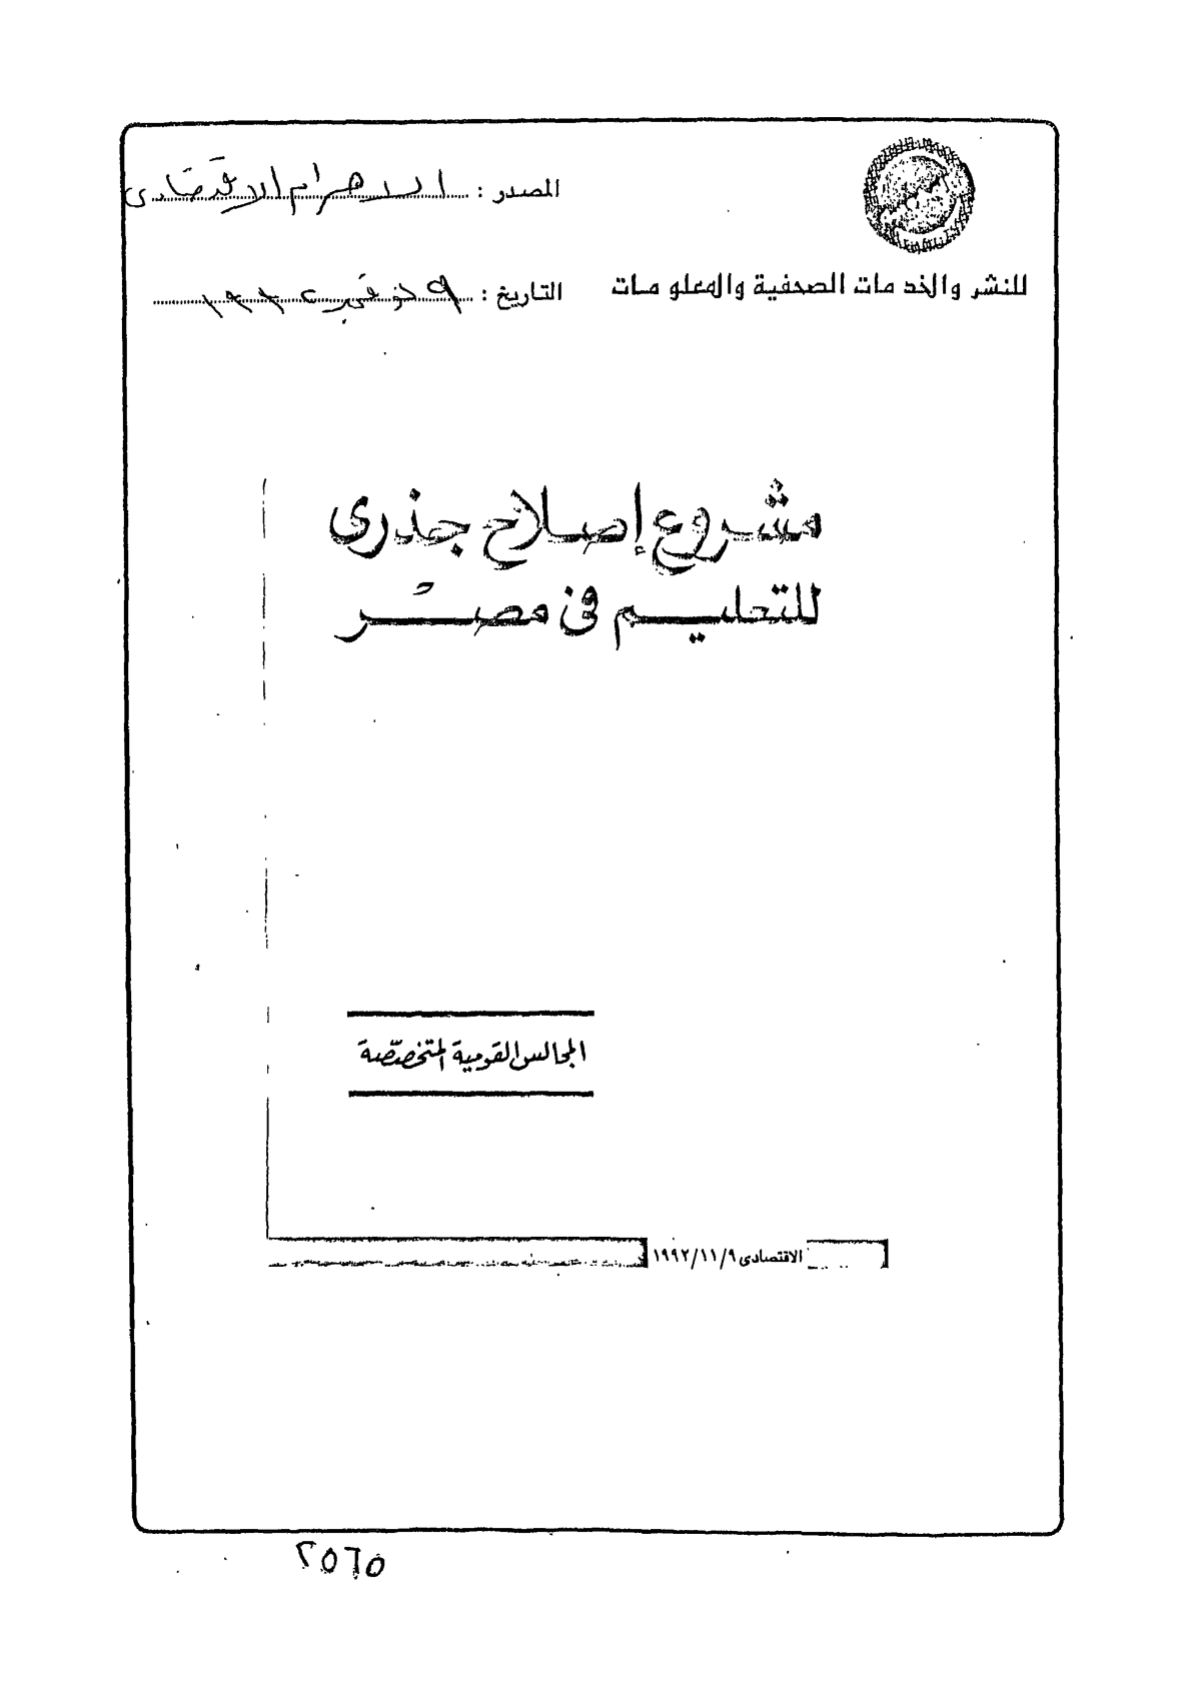 المصدر : الاهرام الاقتصادى
للنشر والخدمات الصحفية والمعلومات
التاريخ : ٩ نوفمبر ١٩٩٢
مشروع إصلاح جذرى
للتعليم فى مصر
المجالس القومية المتخصصة
الاقتصادى ١٩٩٢/١١/٩
٢٥٦٥